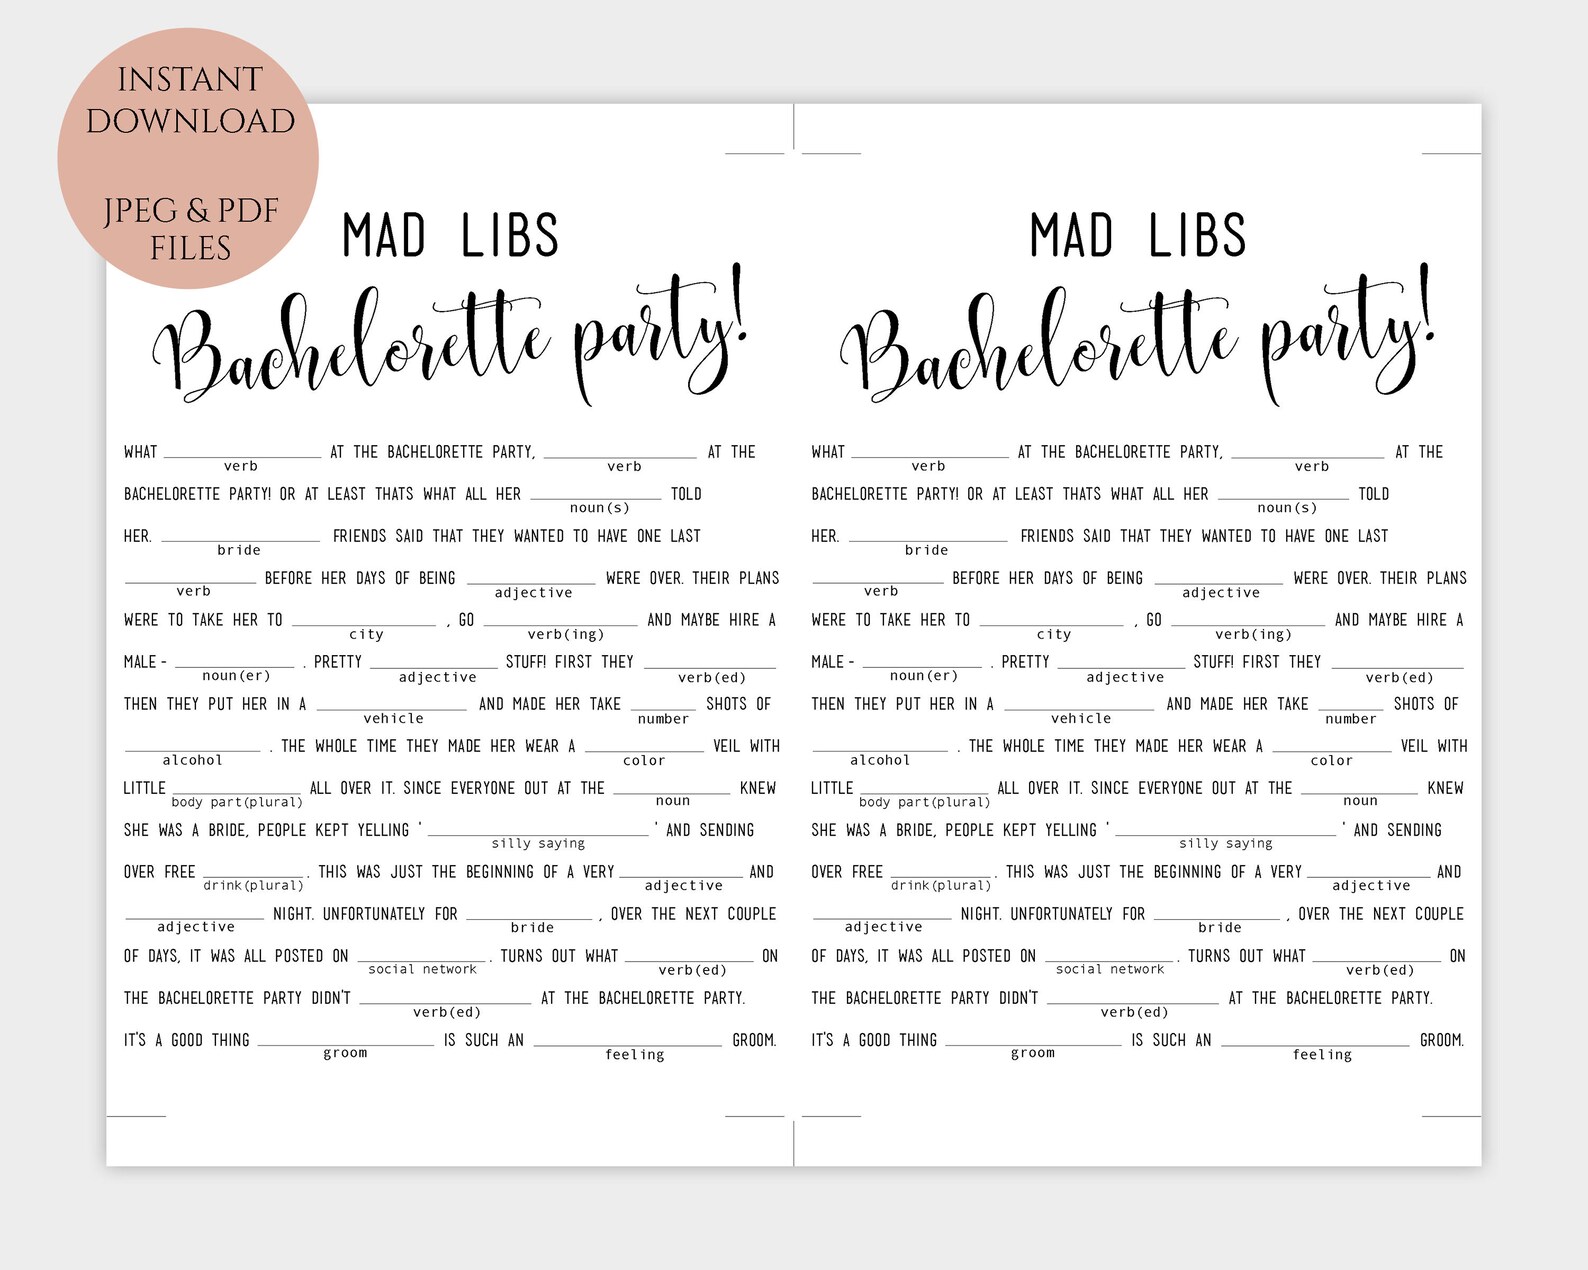 INSTANT
DOWNLOAD
JPEG & PDF
FILES
MAD LIBS
Bachelorette party!
WHAT ____ AT THE BACHELORETTE PARTY, ____ AT THE
verb verb
BACHELORETTE PARTY! OR AT LEAST THATS WHAT ALL HER ____ TOLD
noun(s)
HER. ____ FRIENDS SAID THAT THEY WANTED TO HAVE ONE LAST
bride
____ BEFORE HER DAYS OF BEING ____ WERE OVER. THEIR PLANS
verb adjective
WERE TO TAKE HER TO ____ , GO ____ AND MAYBE HIRE A
city verb(ing)
MALE- ____ . PRETTY ____ STUFF! FIRST THEY ____
noun(er) adjective verb(ed)
THEN THEY PUT HER IN A ____ AND MADE HER TAKE ____ SHOTS OF
vehicle number
____ . THE WHOLE TIME THEY MADE HER WEAR A ____ VEIL WITH
alcohol color
LITTLE ____ ALL OVER IT. SINCE EVERYONE OUT AT THE ____ KNEW
body part(plural) noun
SHE WAS A BRIDE, PEOPLE KEPT YELLING ' ____ ' AND SENDING
silly saying
OVER FREE ____ . THIS WAS JUST THE BEGINNING OF A VERY ____ AND
drink(plural) adjective
____ NIGHT. UNFORTUNATELY FOR ____ , OVER THE NEXT COUPLE
adjective bride
OF DAYS, IT WAS ALL POSTED ON ____ . TURNS OUT WHAT ____ ON
social network verb(ed)
THE BACHELORETTE PARTY DIDN'T ____ AT THE BACHELORETTE PARTY.
verb(ed)
IT'S A GOOD THING ____ IS SUCH AN ____ GROOM.
groom feeling
MAD LIBS
Bachelorette party!
WHAT ____ AT THE BACHELORETTE PARTY, ____ AT THE
verb verb
BACHELORETTE PARTY! OR AT LEAST THATS WHAT ALL HER ____ TOLD
noun(s)
HER. ____ FRIENDS SAID THAT THEY WANTED TO HAVE ONE LAST
bride
____ BEFORE HER DAYS OF BEING ____ WERE OVER. THEIR PLANS
verb adjective
WERE TO TAKE HER TO ____ , GO ____ AND MAYBE HIRE A
city verb(ing)
MALE- ____ . PRETTY ____ STUFF! FIRST THEY ____
noun(er) adjective verb(ed)
THEN THEY PUT HER IN A ____ AND MADE HER TAKE ____ SHOTS OF
vehicle number
____ . THE WHOLE TIME THEY MADE HER WEAR A ____ VEIL WITH
alcohol color
LITTLE ____ ALL OVER IT. SINCE EVERYONE OUT AT THE ____ KNEW
body part(plural) noun
SHE WAS A BRIDE, PEOPLE KEPT YELLING ' ____ ' AND SENDING
silly saying
OVER FREE ____ . THIS WAS JUST THE BEGINNING OF A VERY ____ AND
drink(plural) adjective
____ NIGHT. UNFORTUNATELY FOR ____ , OVER THE NEXT COUPLE
adjective bride
OF DAYS, IT WAS ALL POSTED ON ____ . TURNS OUT WHAT ____ ON
social network verb(ed)
THE BACHELORETTE PARTY DIDN'T ____ AT THE BACHELORETTE PARTY.
verb(ed)
IT'S A GOOD THING ____ IS SUCH AN ____ GROOM.
groom feeling